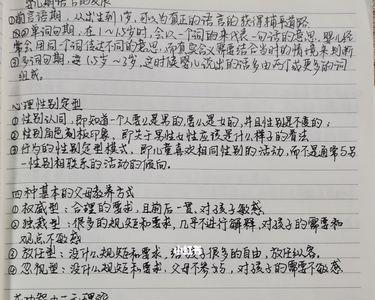 婴儿期语言的发展
①前言语期，从出生到1岁，可以为真正的语言的获得铺平道路
②单词句期，在1～1.5岁时，会以一个词的来代表一句话的意思，婴儿经
常会用同一个词传达不同的意思，而真实含义需要结合当时的情境来判断
③多词句期，这1.5岁～3岁，这时候婴儿说出的话多由两个或更多的词
组成。
心理性别定型
①性别认同，即知道一个人要么是男的，要么是女的，并且性别是不变的；
②性别角色刻板印象，即关于男性女性应该是什么样子的看法
③行为的性别定型模式，即儿童喜欢相同性别的活动，而不是通常与另
一性别相联系的活动的倾向。
四种基本的父母教养方式
①权威型：合理的要求，且前后一置，对孩子敏感
②独裁型：很多的规矩和要求，几乎不进行解释，对孩子的需要和
观点不敏感
③放任型：没什么规矩和要求，给孩子很多的自由，放任纵容。
④忽视型：没什么规矩和要求，父母不参与，对孩子的需要不敏感
小红书